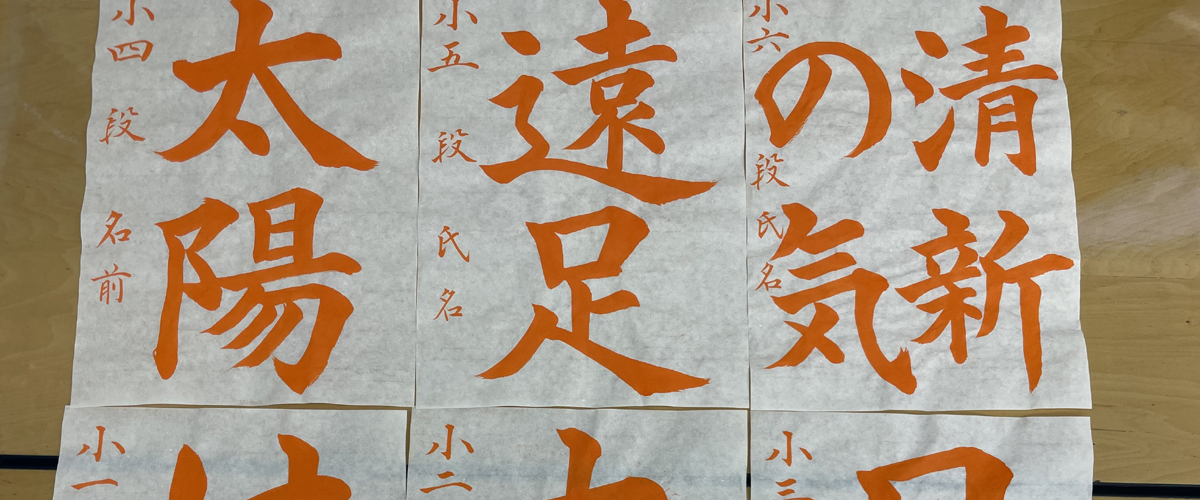 清新
の気
小六 段 氏名
遠足
小五 段 氏名
太陽
小四 段 名前
小三
小二
小一